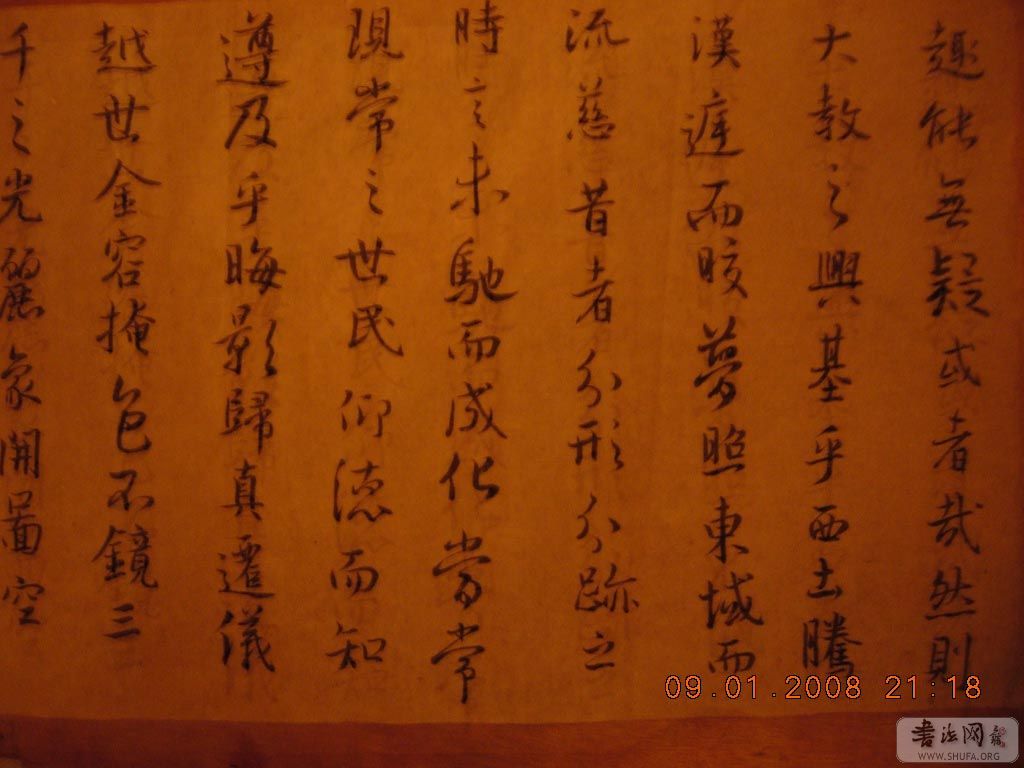 趣能無疑或者哉然則
大教之興基乎西土騰
漢遅而皎夢照東域而
流慈昔者分形分跡之
時言未馳而成化當常
現常之世民仰德而知
遵及乎晦影歸真遷儀
越世金容掩色不鏡三
千之光麗象開啚空
09.01.2008 21:18
书法网
WWW.SHUFA.ORG